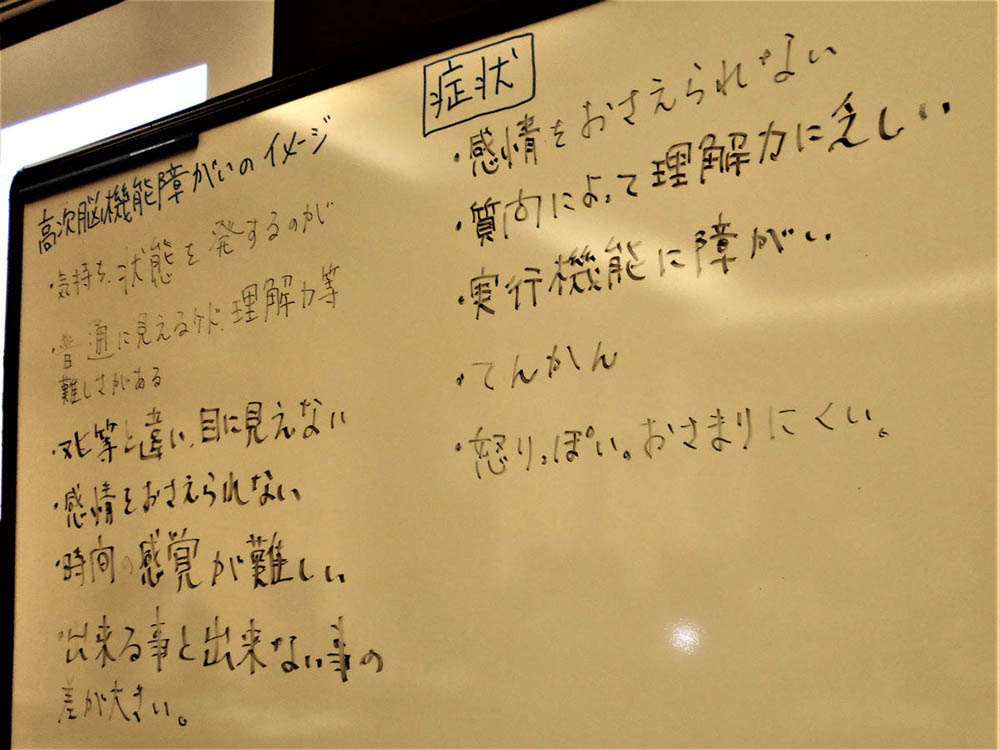 高次脳機能障がいのイメージ
・気持ち、状態を発するのが
・普通に見えるケド、理解力等
難しさがある
・マヒ等と違い、目に見えない
・感情をおさえられない
・時間の感覚が難しい
・出来る事と出来ない事の
差が大きい。
症状
・感情をおさえられない
・質向によって理解力に乏しい
・実行機能に障がい
・てんかん
・怒りっぽい。おさまりにくい。